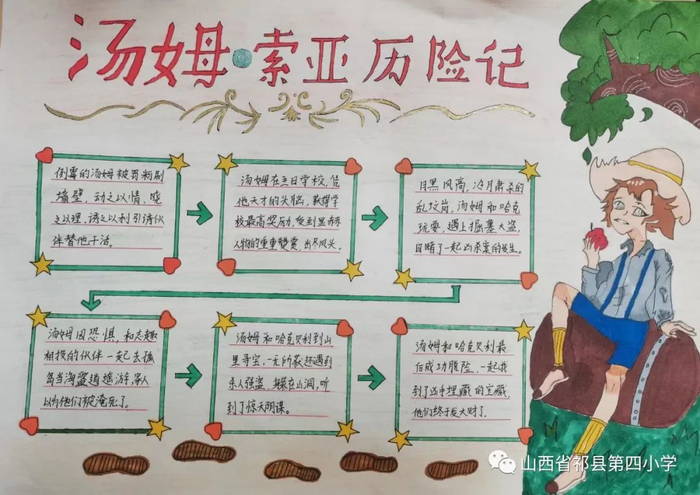 汤姆·索亚历险记
倒霉的汤姆被罚粉刷
墙壁,动之以情,晓
之以理,诱之以利引诱伙
伴替他干活。
汤姆在主日学校,凭
他天才的头脑,获得学
校最高奖励,受到显赫
人物的重重赞赏,出尽风头。
月黑风高,冷月肃杀的
乱坟岗,汤姆和哈克
玩耍,遇上掘墓大盗,
目睹了一起凶杀案的发生。
汤姆因恐惧,和志趣
相投的伙伴一起去孤
岛当海盗逍遥游,家人
以为他们被淹死了。
汤姆和哈克贝利到山
里寻宝,一无所获还遇到
杀人强盗,躲在山洞,听
到了惊天阴谋。
汤姆和哈克贝利最
后成功脱险,一起找
到了凶手埋藏的宝藏,
他们终于发大财了。
山西省祁县第四小学